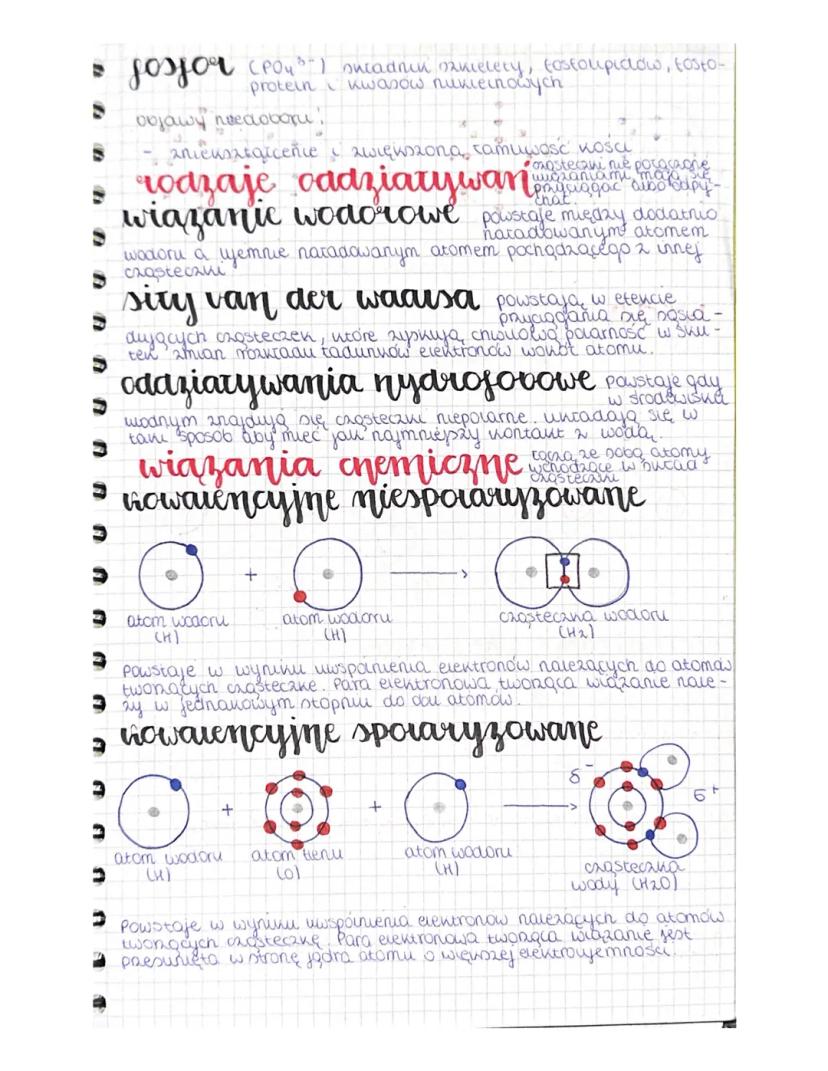 fosfor (PO₄³⁻) składnik szkieletu, fosfolipidów, fosfo-
protein i kwasów nukleinowych
objawy niedoboru:
- zniekształcenie i zwiększona łamliwość kości
rodzaje oddziaływań cząsteczki nie połączone
wiązaniami mają się
przyciągać albo odpy-
chać.
wiązanie wodorowe powstaje między dodatnio
naładowanym atomem
wodoru a ujemnie naładowanym atomem pochodzącego z innej
cząsteczki
siły van der waalsa powstają w efekcie
przyciągania się sąsia-
dujących cząsteczek, które zyskują chwilową polarność w sku-
tek zmian rozkładu ładunków elektronów wokół atomu.
oddziaływania hydrofobowe powstaje gdy
w środowisku
wodnym znajdują się cząsteczki niepolarne. układają się w
taki sposób aby mieć jak najmniejszy kontakt z wodą.
wiązania chemiczne łączą ze sobą atomy
wchodzące w skład
cząsteczki
kowalencyjne niespolaryzowane
+
atom wodoru
(H)
atom wodoru
(H)
cząsteczka wodoru
(H2)
Powstaje w wyniku uwspólnienia elektronów należących do atomów
tworzących cząsteczkę. Para elektronowa tworząca wiązanie nale-
ży w jednakowym stopniu do obu atomów.
kowalencyjne spolaryzowane
δ⁻
δ⁺
+
+
atom wodoru
(H)
atom tlenu
(O)
atom wodoru
(H)
cząsteczka
wody (H2O)
Powstaje w wyniku uwspólnienia elektronów należących do atomów
tworzących cząsteczkę. Para elektronowa tworząca wiązanie jest
przesunięta w stronę jądra atomu o większej elektroujemności.